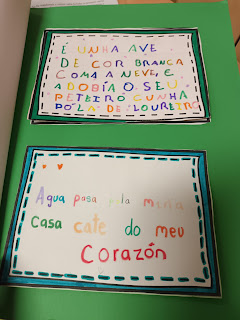 É UNHA AVE
DE COR BRANCA
COMA A NEVE, E
ADOBÍA O SEU
PETEIRO CUNHA
PÓLA DE LOUREIRO
Agua pasa pola miña
Casa cate do meu
Corazón